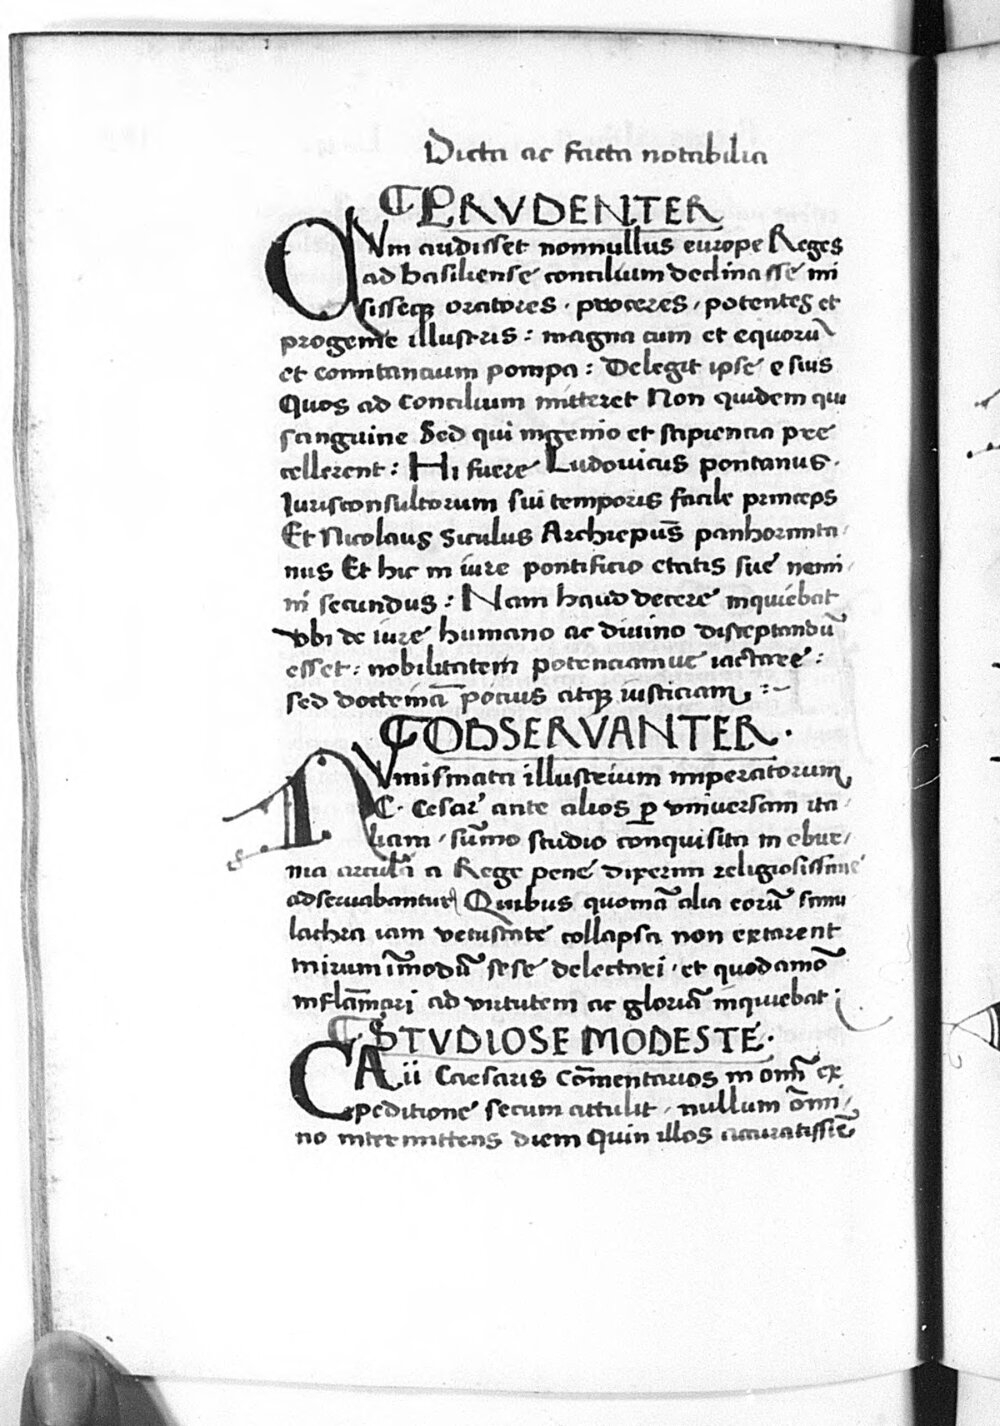 Dicta ac facta notabilia
¶ PRVDENTER
QVm audisset nonnullus europe Reges
ad basiliense concilium declinasse mi
sisseqꝫ oratores · proceres, potentes et
progenie illustris : magna cum et equorū
et comitancium pompa : Delegit ipse e suis
Quos ad concilium mitteret Non quidem qui
sanguine Sed qui ingenio et sapiencia pre
cellerent : Hi fuere Ludovicus pontanus ·
Iurisconsultorum sui temporis facile princeps
Et Nicolaus siculus Archiepūs panhormita
nus Et hic in iure pontificio etatis sue nemi
ni secundus : Nam haud decere inquiebat
vbi de iure humano ac divino disceptandū
esset : nobilitatem potenciamue iactare :
sed doctrinā pocius atqꝫ iusticiam :~
¶ OBSERVANTER ·
NVmismata illustrium imperatorum
C · Cesar' ante alios ꝑ vniversam ita
liam, sūmo studio conquisita in ebur/
nia arculā a Rege pene dixerim religiosissime
adservabantur Quibus quoniā alia eorū simu
lachra iam vetustate collapsa non extarent
mirum īmodū sese delectari · et quodamō
inflāmari ad virtutem ac gloriā inquiebat ;
¶ STVDIOSE MODESTE ·
CAii Caesaris cōmentarios in omī ex
peditione secum attulit, nullum ōmi/
no intermittens diem Quin illos accuratissīe